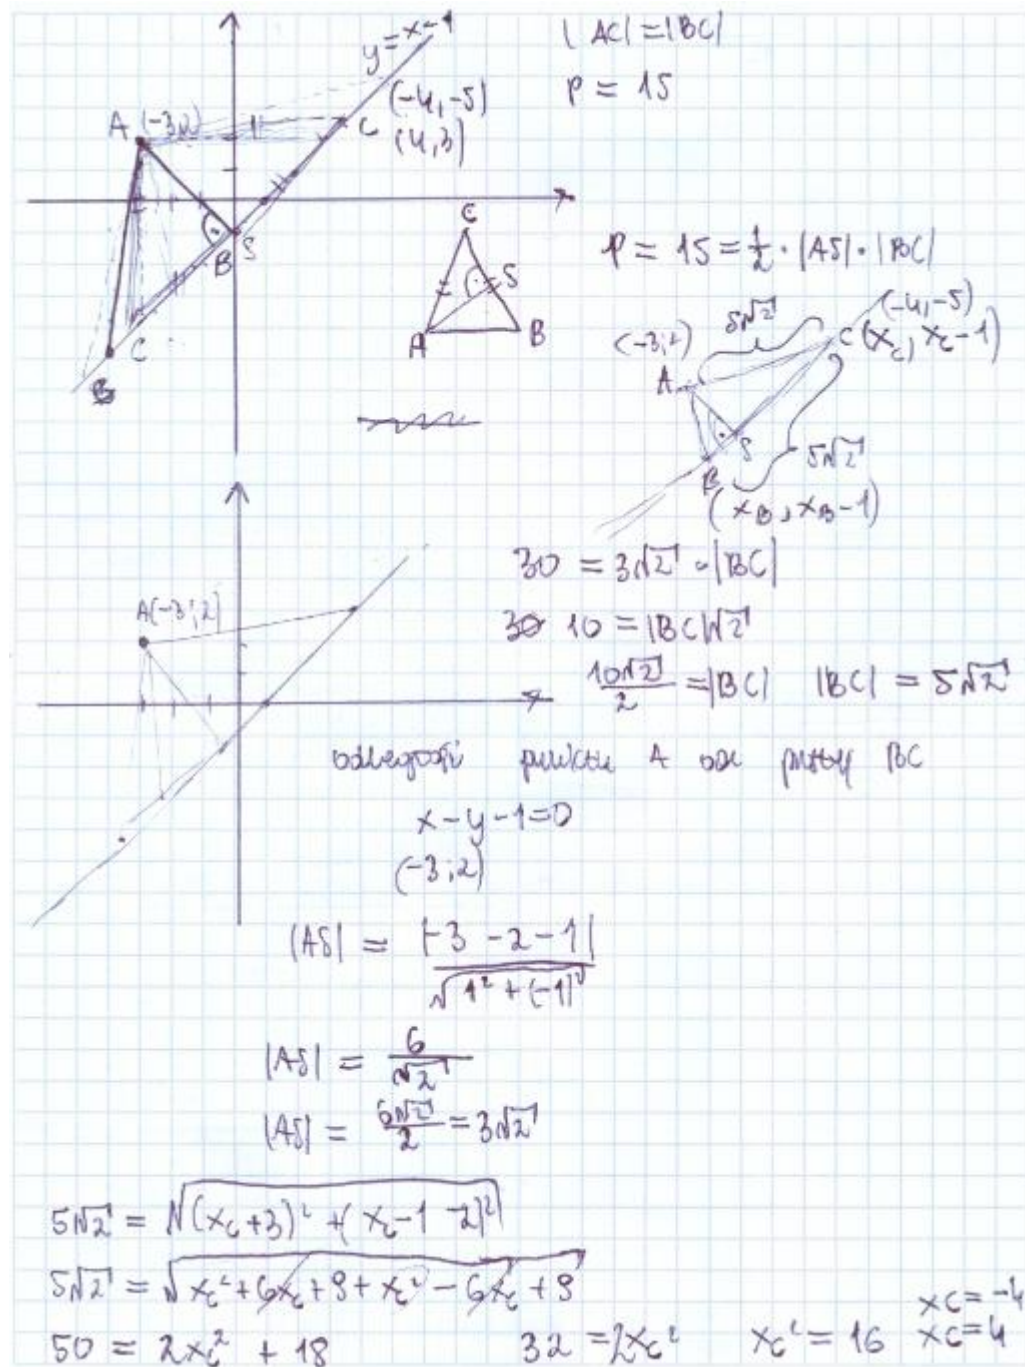 y=x-1
|AC|=|BC|
P = 15
A (-3;2)
(-4,-5)
(4,3)
C
1
B
S
C
B
C
S
A
B
P = 15 = 1/2 · |AS| · |BC|
5√2
(-4,-5)
(-3;2)
C (x_c, x_c-1)
A
S
B
5√2
(x_B, x_B-1)
A(-3;2)
30 = 3√2 · |BC|
30 10 = |BC|√2
10√2/2 = |BC| |BC| = 5√2
odległość punktu A od prostej BC
x-y-1=0
(-3;2)
|AS| = |-3 -2 -1| / √(1² + (-1)²)
|AS| = 6/√2
|AS| = 6√2/2 = 3√2
5√2 = √((x_c+3)² + (x_c-1-2)²)
5√2 = √(x_c² + 6x_c + 9 + x_c² - 6x_c + 9)
50 = 2x_c² + 18 32 = 2x_c² x_c² = 16 xc = -4
xc = 4